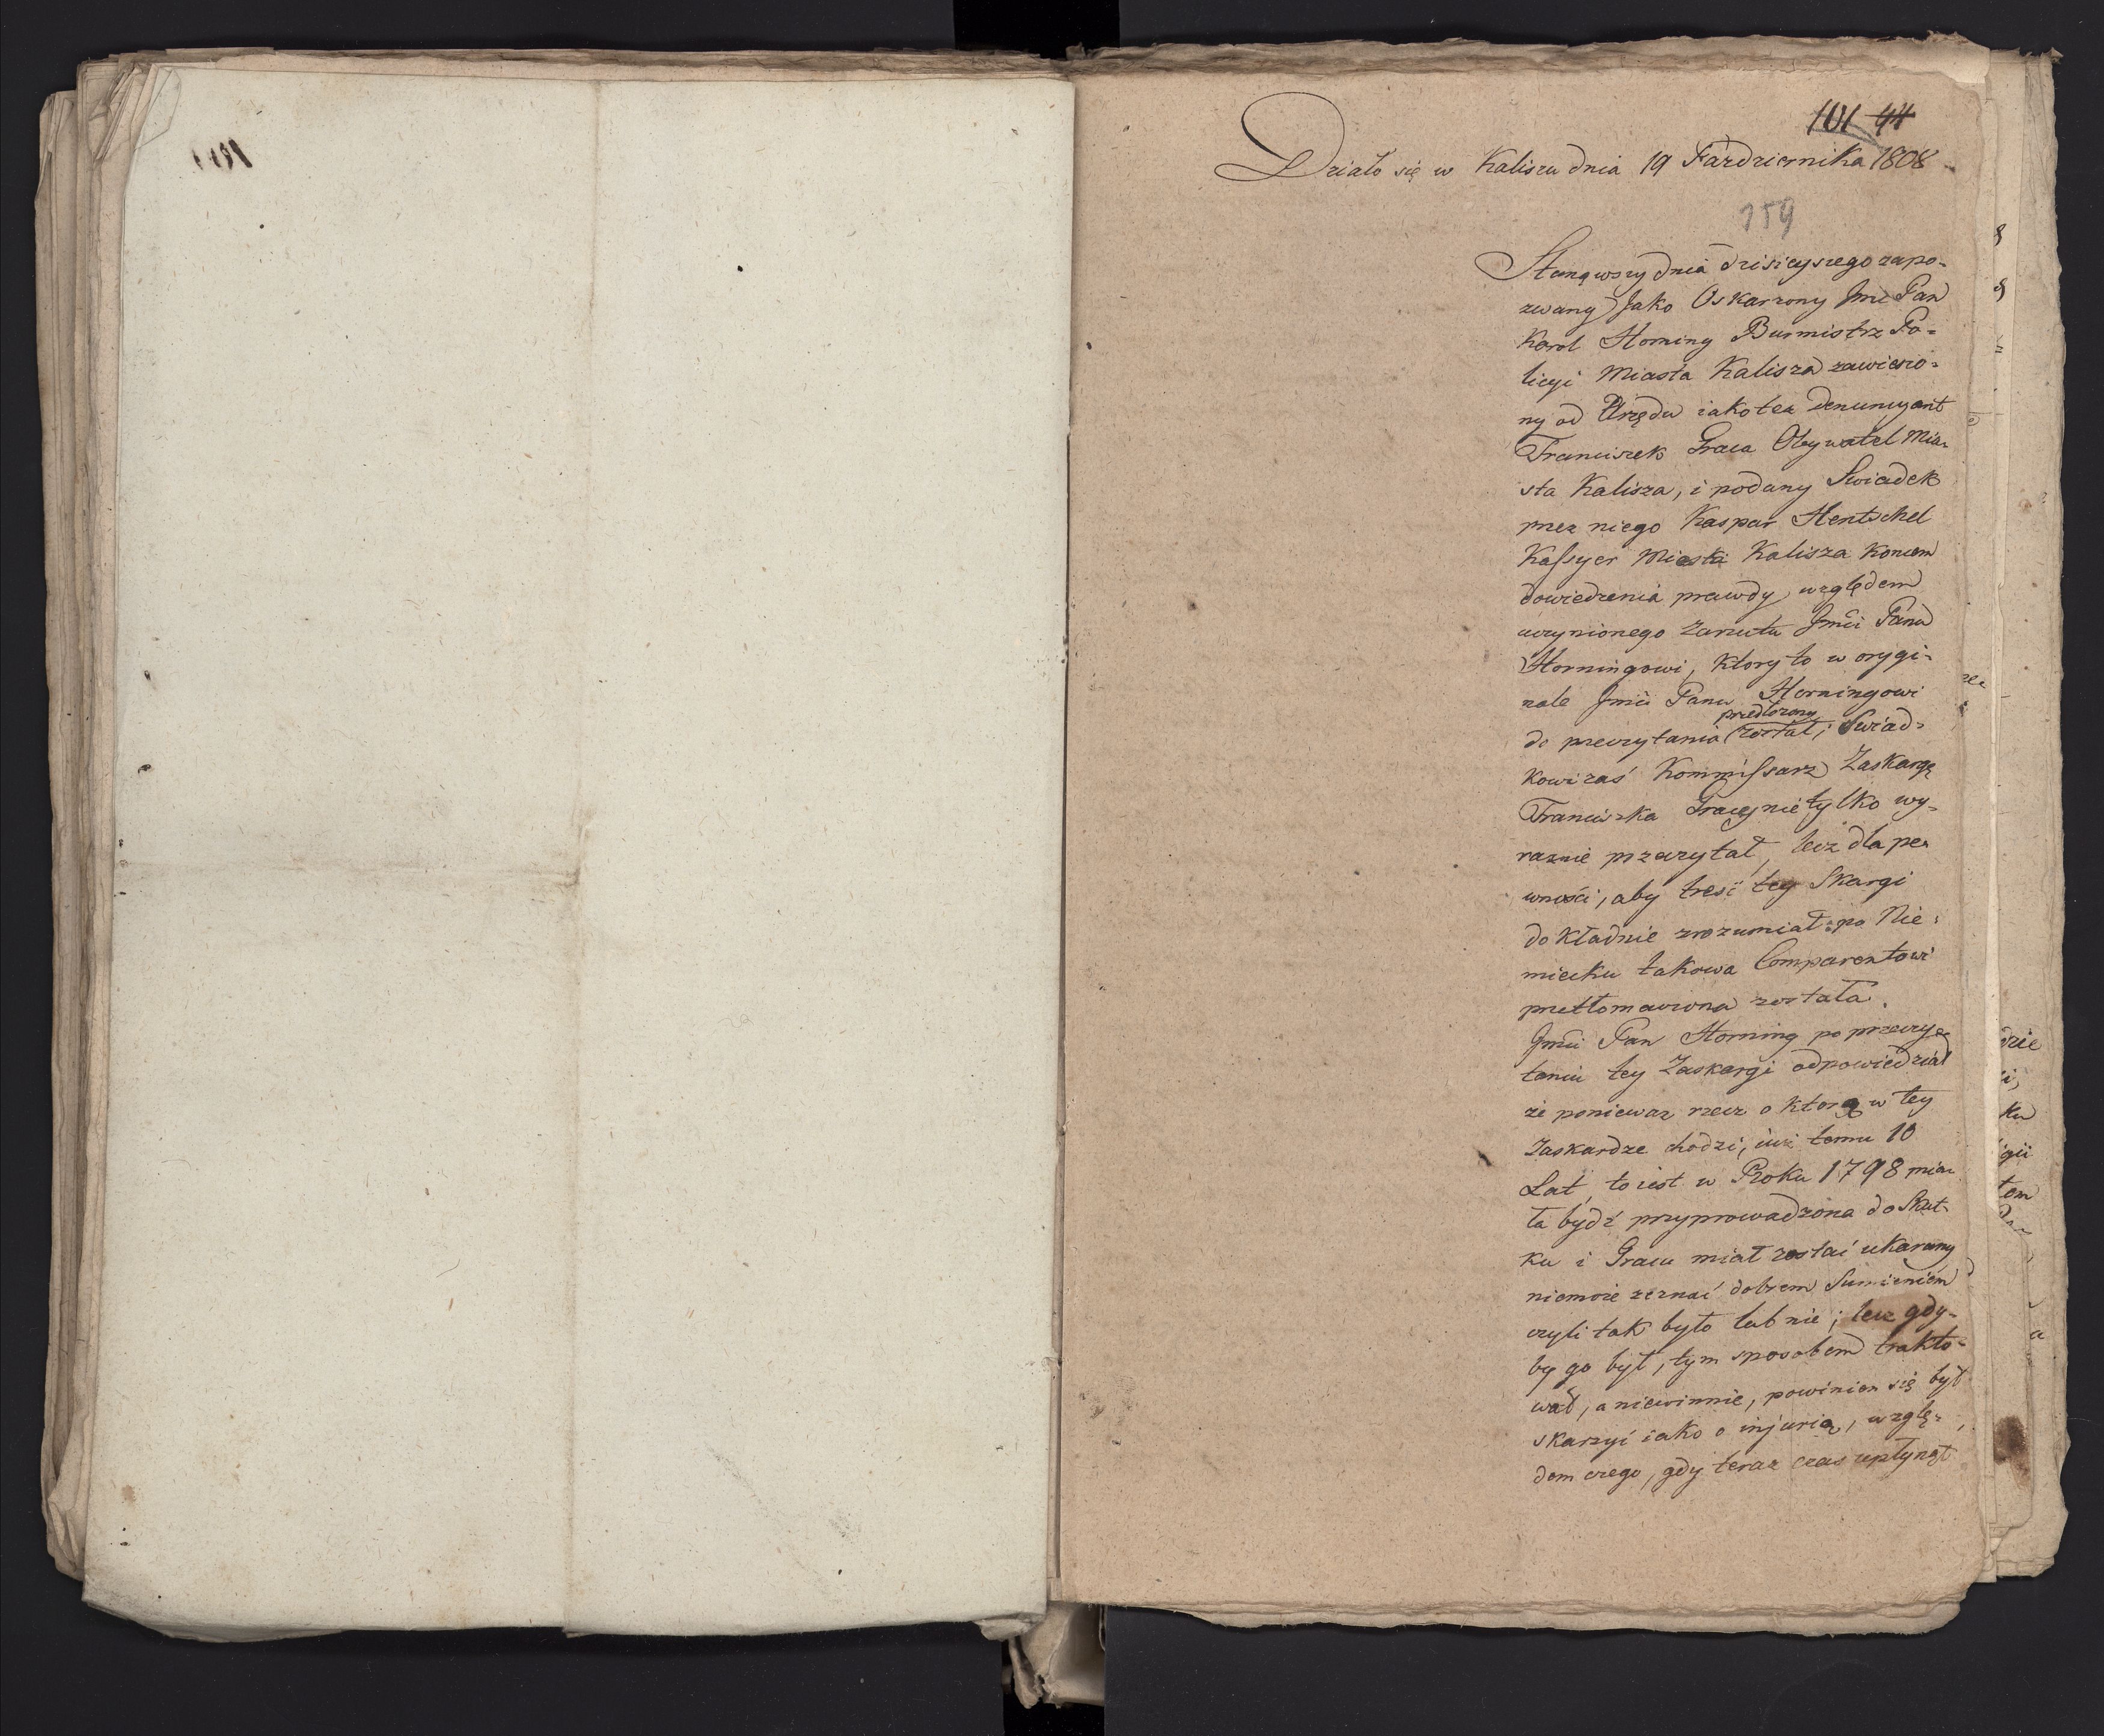 101 44
Działo się w Kaliszu dnia 19 Pazdziernika 1808
159
Stanąwszy dnia dzisieyszego zapo-
zwany Jako Oskarzony Jmć Pan
Karol Horning Burmistrz Po-
licyi Miasta Kalisza zawieszo-
ny od Urzędu iakotez Denuncyant
Franciszek Graca Obywatel Mia-
sta Kalisza, i podany Swiadek
przez niego Kaspar Hentschel
Kassyer Miasta Kalisza koncem
dowiedzenia prawdy względem
uczynionego zarzutu Jmći Panu
Horningowi, ktory to w orygi-
nale Jmći Panu Horningowi
do przeczytania przedłozony został; Swiad-
kowi zaś Kommissarz Zaskargę
Franciszka Gracy nie tylko wy-
raznie przeczytał, lecz dla pe-
wności, aby tresć tey Skargi
dokładnie zrozumiał po Nie-
miecku takowa Comparentowi
przetłomaczona została.
Jmći Pan Horning po przeczy-
taniu tey Zaskargi odpowiedział
że poniewaz rzecz o ktorą w tey
Zaskardze chodzi, iuż temu 10
Lat, to iest w Roku 1798 mia-
ła bydź przyprowadzona do Skut-
ku i Graca miał zostać ukarany
niemoże zeznać dobrem Sumieniem
czyli tak było lub nie; lecz gdy-
by go był, tym sposobem trakto-
wał, a niewinnie, powinien się był
skarzyć iako o injurią, wzglę-
dem czego, gdy teraz czas upłynął